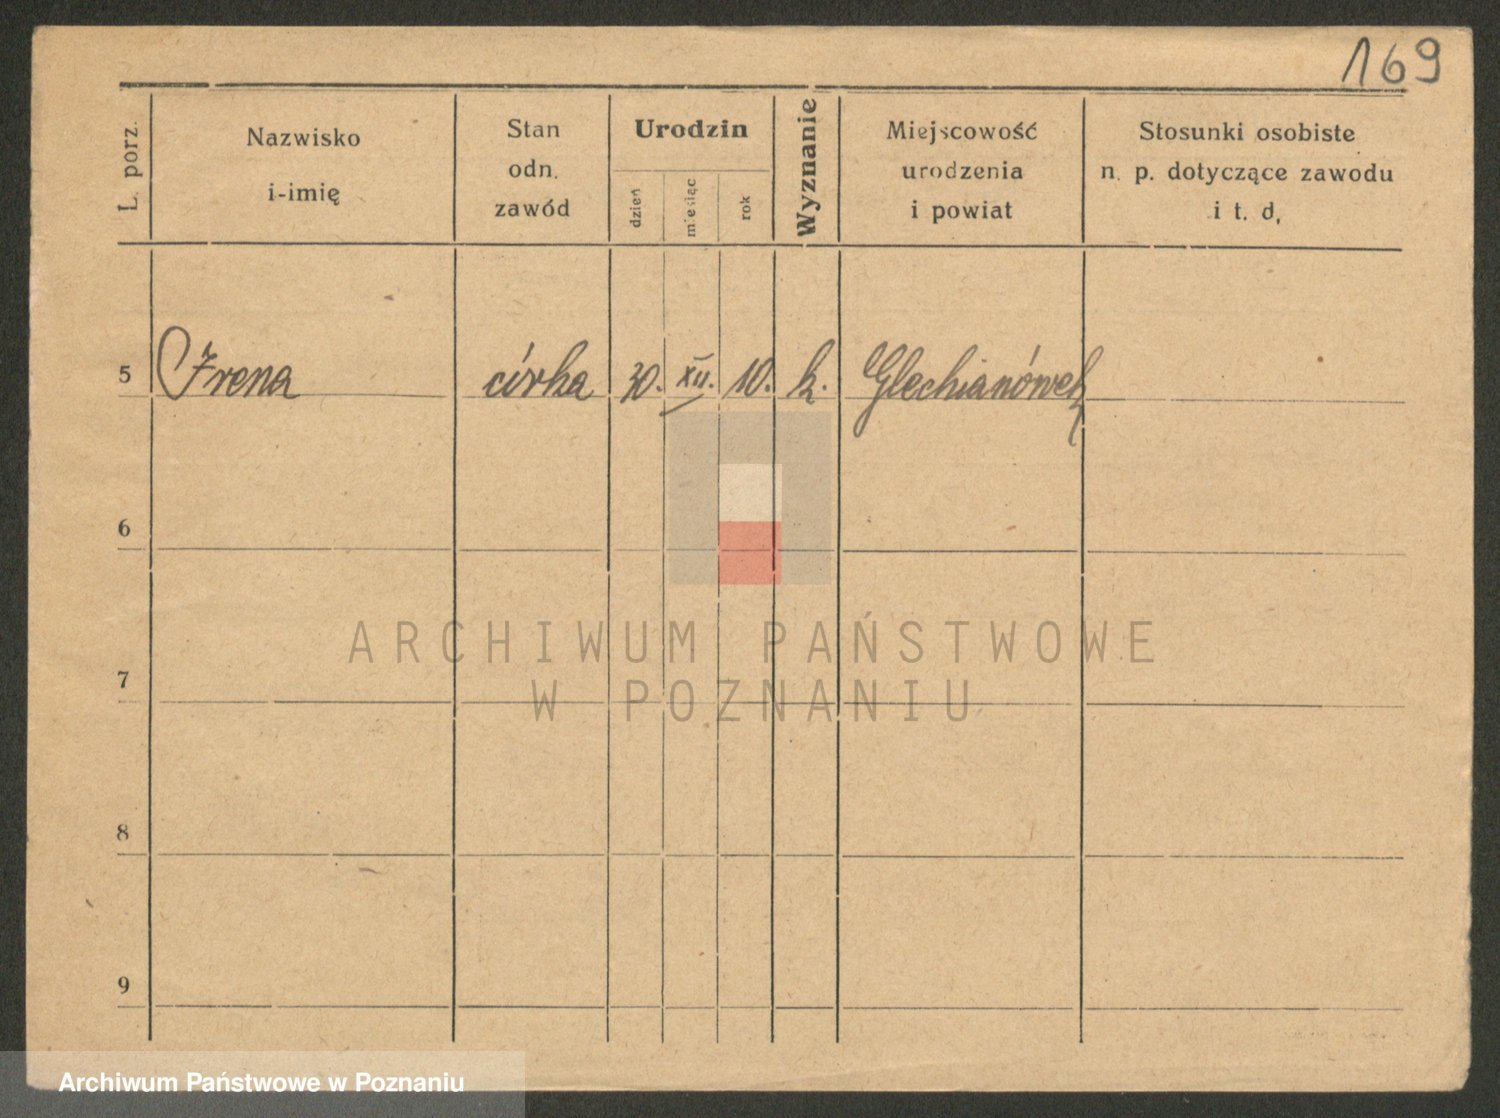 169
L. porz.
Nazwisko
i-imię
Stan
odn.
zawód
Urodzin
dzień
miesiąc
rok
Wyznanie
Miejscowość
urodzenia
i powiat
Stosunki osobiste
n. p. dotyczące zawodu
i t. d,
5 Irena córka 30. XII. 10. k.
6
7
8
9
ARCHIWUM PAŃSTWOWE
W POZNANIU
Archiwum Państwowe w Poznaniu